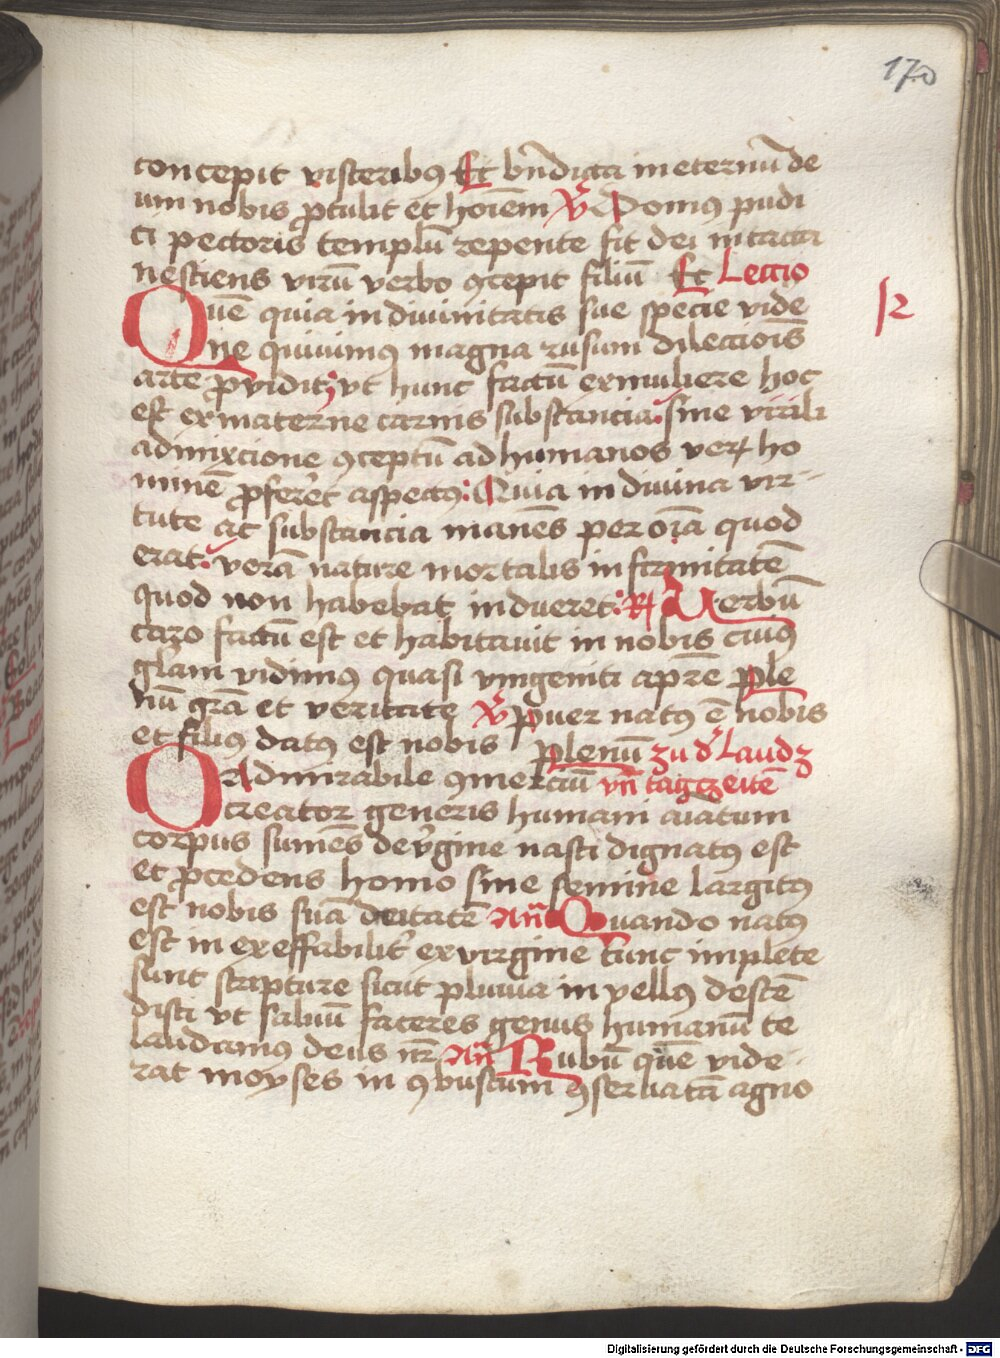 170
concepit visceribus Et bn̄dicta in eternū de
um nobis ꝓtulit et hoīem V̄ Domus pudi
ci pectoris templū repente fit dei intacta
nesciens virū verbo ꝯcepit filiū Et Lectio
Quē quia in divinitatis sue specie vide
R
ne quivimus magna rursum dilecciois̄
arte ꝓvidit vt hunc factū ex muliere hoc
est ex materne carnis substancia sine virili
admixcione ꝯceptū ad humanos ver ho
minē ꝓferr̄et aspectus Quia in divina vir-
tute ac substancia manēs per oīa quod
erat verā nature mortalis infirmitatē
quod non habebat indueret R Verbū
caro factū est et habitavit in nobis cuius
glam vidimus quasi vnigeniti a pr̄e ple
nū grā et veritate V̄ Puer natus ē nobis
et filius datus est nobis plenū zu d' Laudz
O Admirabile ꝯmercium vn̄ tagczeitē
creator generis humani aīatum
corpus sumēs de v̓gine nasci dignatus est
et ꝓcedens homo sine semine largitus
est nobis suā deitatē An̄ Quando natus
est in exeffabilit̓ ex virgine tunc implete
sunt scripture sicut pluvia in vellus descē
disti vt salvū faceres genus humanū te
laudamus deus nr̄ An̄ Rubū quē vide-
rat moyses in ꝯbustum ꝯservatā agno
Digitalisierung gefördert durch die Deutsche Forschungsgemeinschaft - DFG